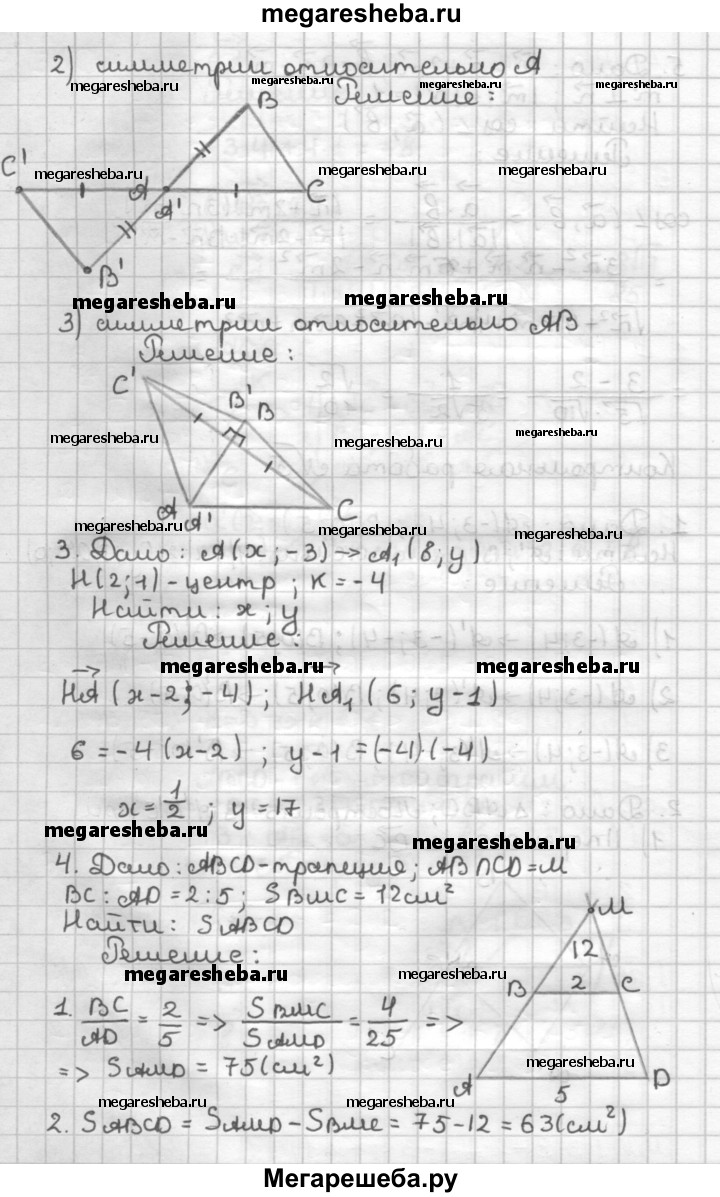 megaresheba.ru
2) симметрии относительно A
megaresheba.ru megaresheba.ru megaresheba.ru megaresheba.ru
B Решение:
C' megaresheba.ru megaresheba.ru megaresheba.ru
A A' C
B'
megaresheba.ru megaresheba.ru
3) симметрии относительно AB
Решение:
C' B' B
megaresheba.ru megaresheba.ru megaresheba.ru
A A' C
megaresheba.ru megaresheba.ru
3. Дано: A(x;-3) → A₁(8;y)
H(2;1)-центр; K=-4
Найти: x; y
Решение:
megaresheba.ru megaresheba.ru
HA (x-2; -4); HA₁ (6; y-1)
6 = -4(x-2); y-1 = (-4)·(-4)
x = 1/2; y = 17
megaresheba.ru megaresheba.ru
4. Дано: ABCD-трапеция; AB∩CD=M
BC:AD=2:5; SBMC=12см²
Найти: SABCD
Решение:
M
12
B 2 C
A 5 D
megaresheba.ru megaresheba.ru
1. BC/AD = 2/5 => SBMC/SAMD = 4/25 =>
=> SAMD = 75(см²)
megaresheba.ru
megaresheba.ru megaresheba.ru
2. SABCD = SAMD - SBMC = 75-12 = 63(см²)
Мегарешеба.ру